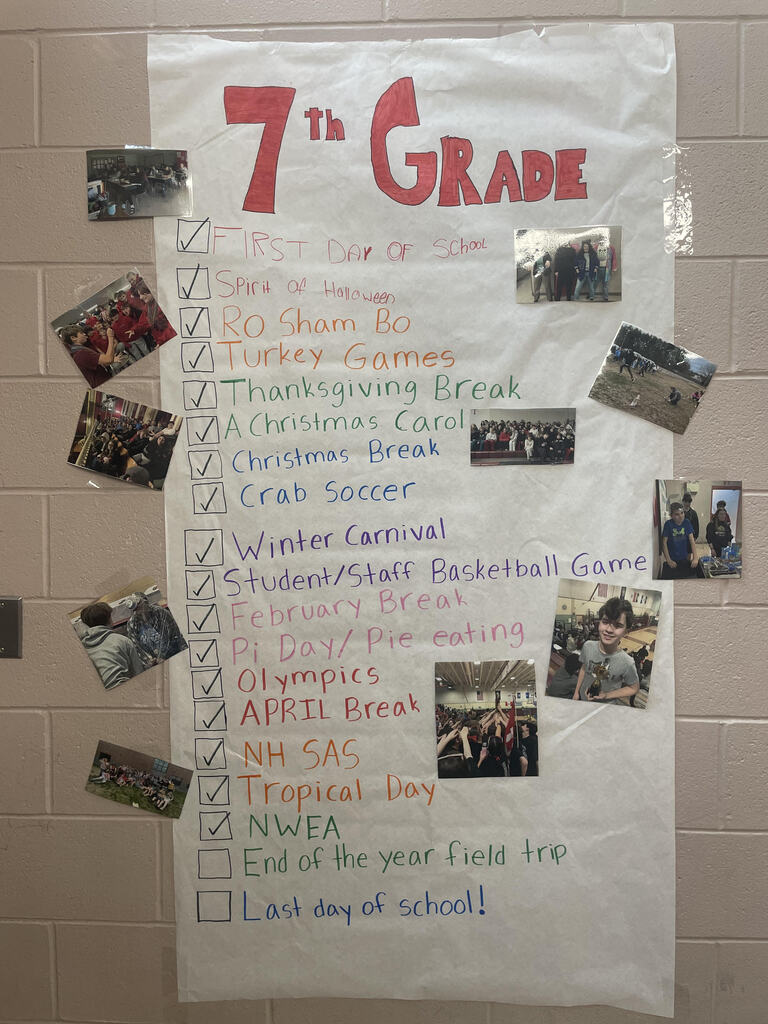 7th GRADE
FIRST DAY OF SCHOOL
Spirit of Halloween
Ro Sham Bo
Turkey Games
Thanksgiving Break
A Christmas Carol
Christmas Break
Crab Soccer
Winter Carnival
Student/Staff Basketball Game
February Break
Pi Day/ Pie eating
Olympics
APRIL Break
NH SAS
Tropical Day
NWEA
End of the year field trip
Last day of school!